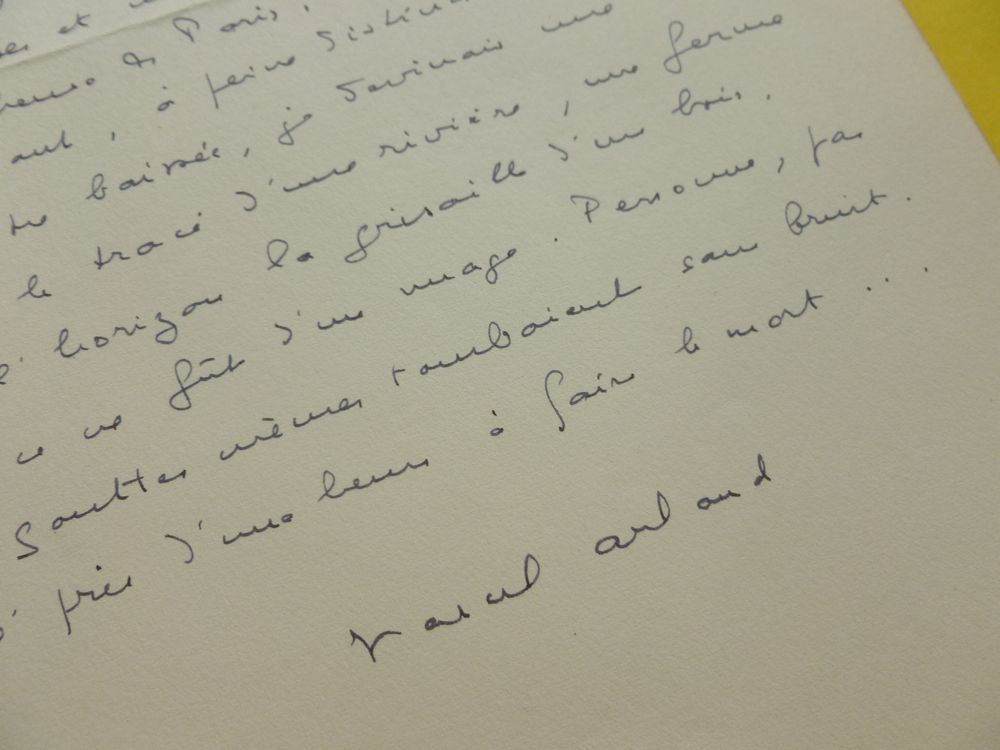 et
de Paris.
, à peine
baissée, je devinais une
le tracé d'une rivière, une ferme
horizon la grisaille d'un bois.
ce ne fût d'un nuage. Personne, pas
gouttes mêmes tombaient sans bruit.
près d'une heure à faire le mort...
Marcel Arland